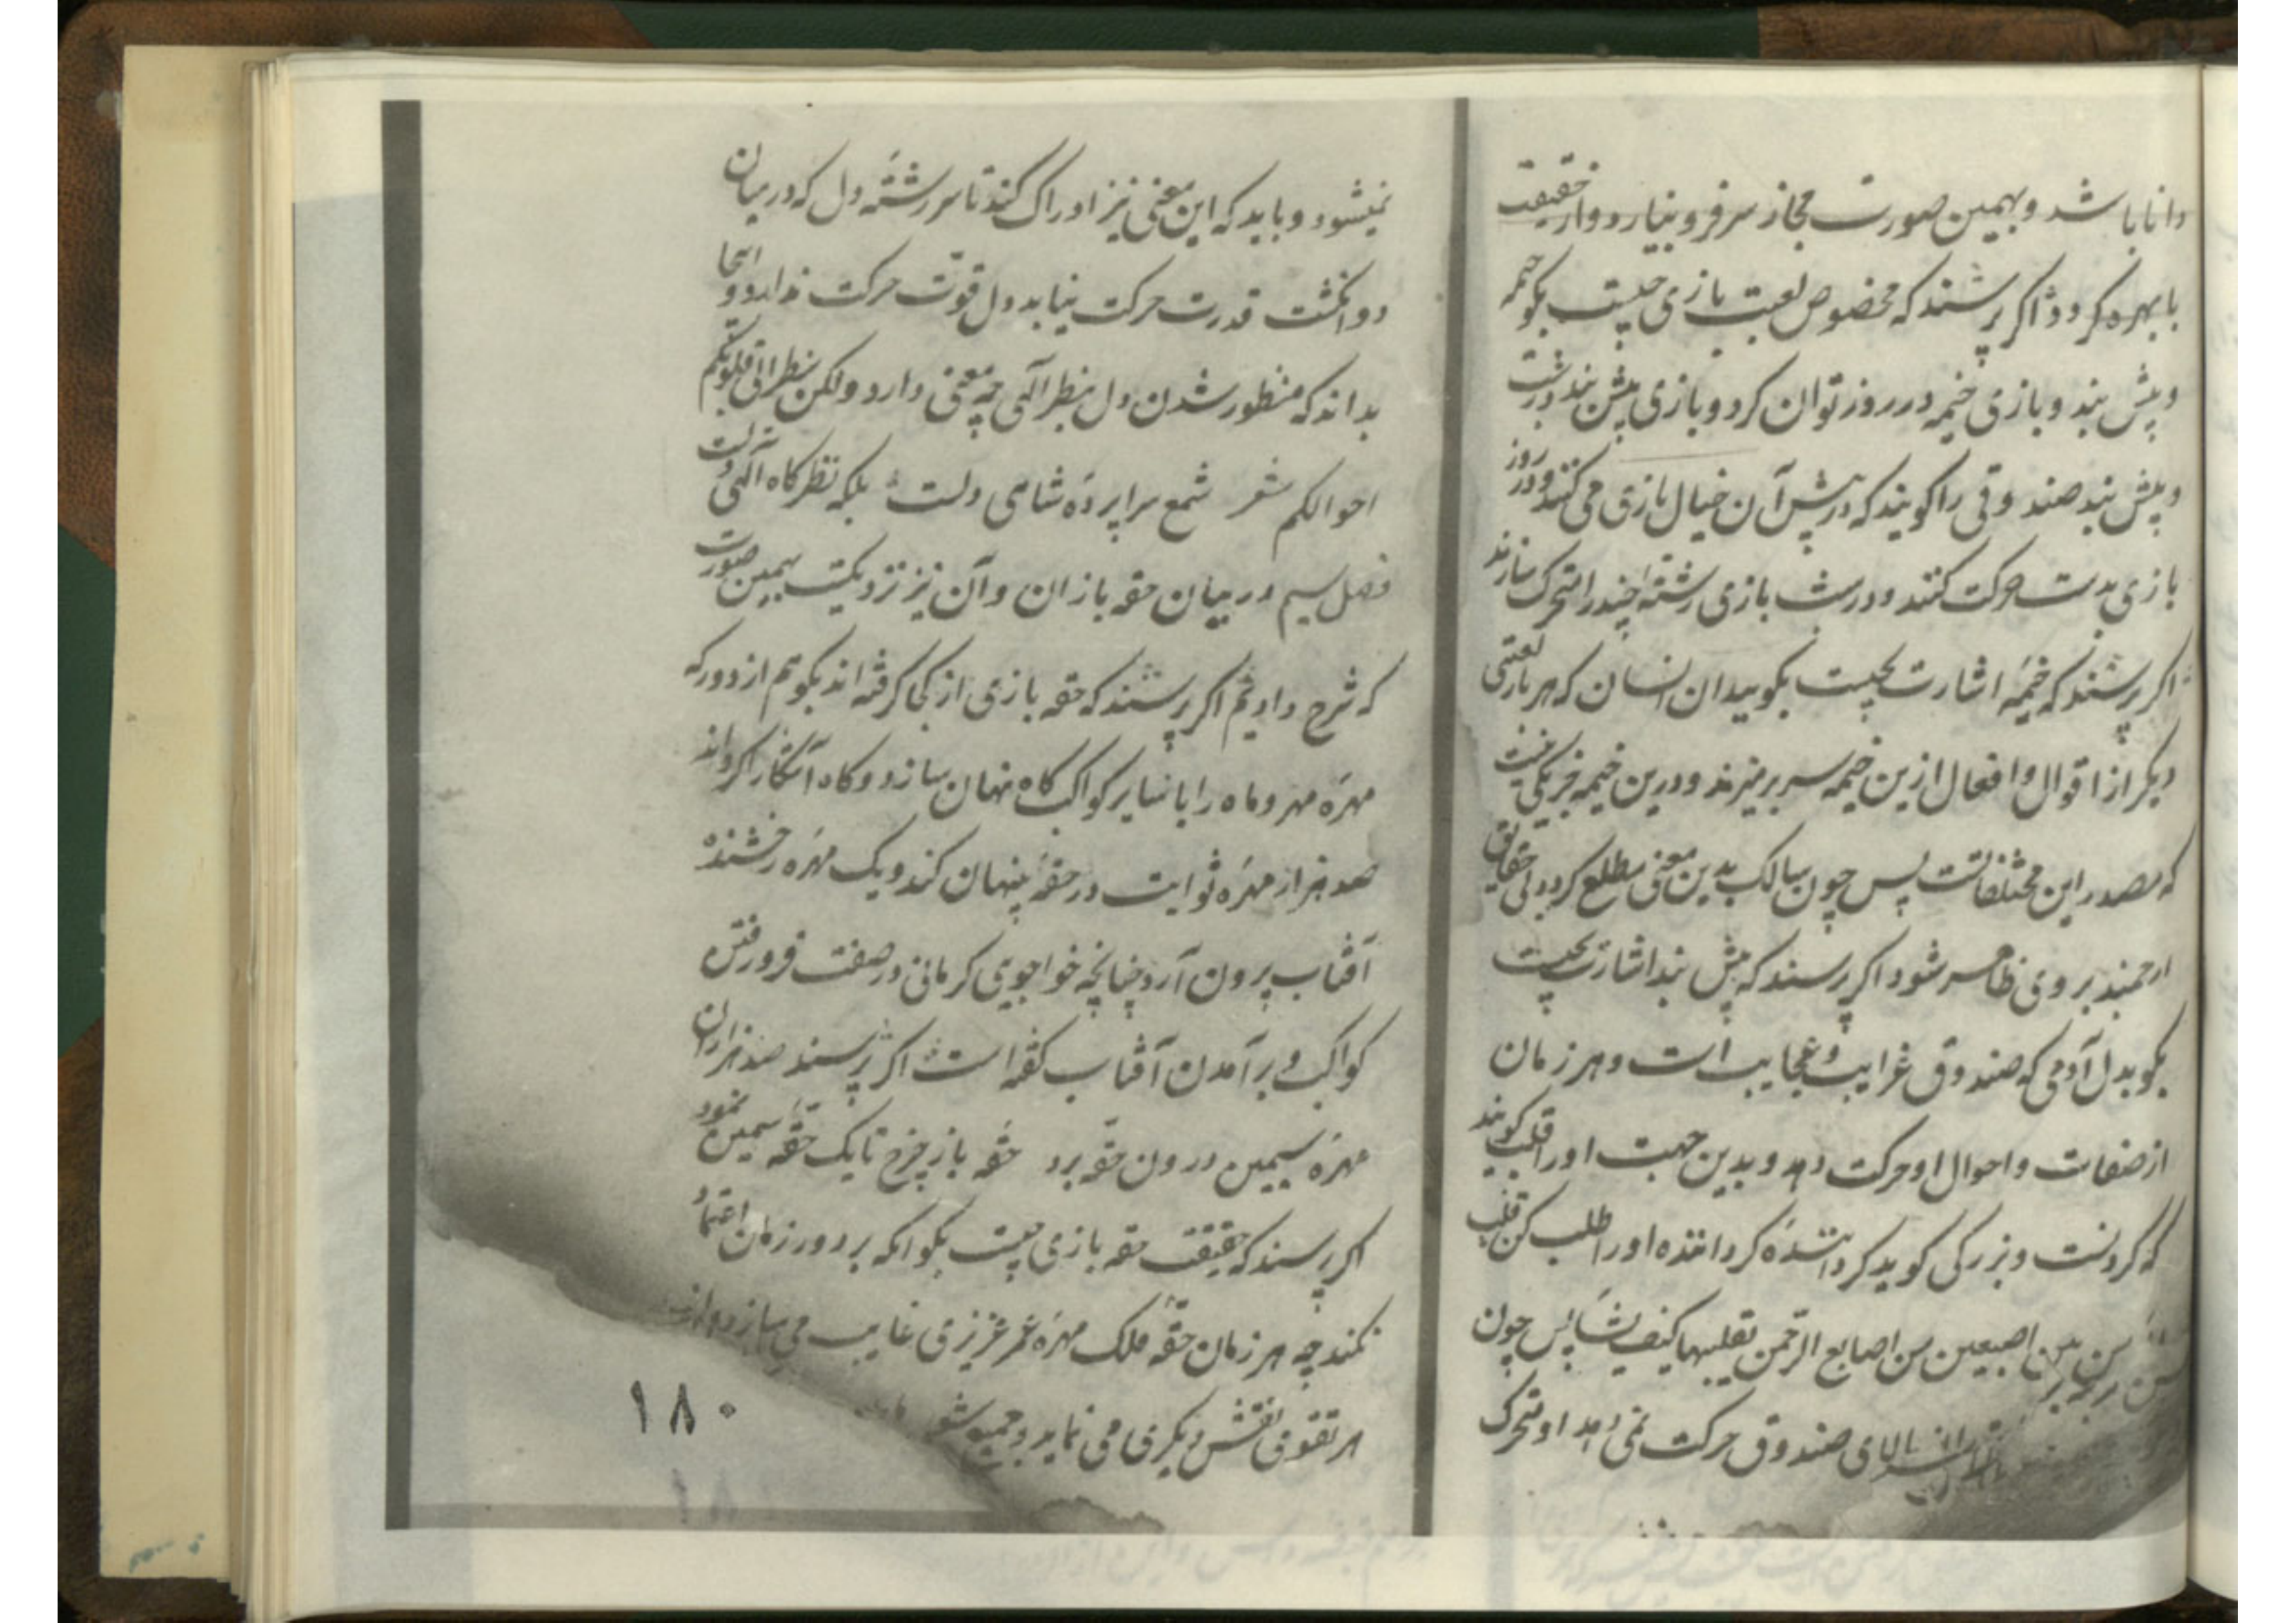 دانا باشد و بهمین صورت مجاز سر فرو نیارد و از حقیقت
با بهره کردد اکر پرسند که مخصوص لعبت بازی چیست بکو خیمه
و پیش بند و بازی خیمه در روز توان کرد و بازی پیش بند در شب
و پیش بند صندوقی را کویند که در پیش آن خیال بازی می کنند و در روز
بازی بدست حرکت کنند و در شب بازی رشتهٔ چند را متحرک سازند
اکر پرسند که خیمه اشارت بچیست بکو بیدان انسان که هر بار لعبتی
دیکر از اقوال و افعال ازین خیمه سر بر میزند و درین خیمه جز یکی نیست
که مصدر این مختلفاتست پس چون سالک بدین معنی مطلع کردد بی حقایق
ارجمند بر وی ظاهر شود اکر پرسند که پیش بند اشارت بچیست
بکو بدل آدمی که صندوق غرایب و عجایب است و هر زمان
از صفات و احوال او حرکت دهد و بدین جهت او را قلب کویند
که کردنست و بزرکی کوید کرداننده کرداننده او را طلب کن قلب
بین اصبعین من اصابع الرحمن یقلبها کیف یشا پس چون
بالای صندوق حرکت نمی دهد او متحرک
نمیشود و باید که این معنی نیز ادراک کند تا سر رشتهٔ دل که در میان
دو انکشت قدرت حرکت نیابد دل قوّت حرکت ندارد و اینجا
بداند که منظور شدن دل بنظر الهی چه معنی دارد ولکن ینظر الی قلوبکم
احوالکم شعر شمع سراپردهٔ شاهی دلست بلکه نظرکاه الهی دلست
فصل سیم در بیان حقه بازان و آن نیز نزدیکست بهمین صورت
که شرح دادیم اکر پرسند که حقه بازی از کجا کرفته اند بکویم از دور که
مهرهٔ مهر و ماه را با سایر کواکب کاه نهان سازد و کاه آشکار کرداند
صد هزار مهرهٔ ثوابت در حقهٔ پنهان کند و یک مهرهٔ رخشنده
آفتاب بیرون آرد چنانچه خواجوی کرمانی در صفت فرو رفتن
کواکب و بر آمدن آفتاب کفته است اکر پرسند صد هزاران
مهرهٔ سیمین درون حقه برد حقه باز چرخ تا یک حقهٔ سیمین نمود
اکر پرسند که حقیقت حقه بازی چیست بکو آنکه بر دور زمان اعتماد
نکند چه هر زمان حقهٔ فلک مهرهٔ عمر عزیزی غایب می سازد و از
هر نقوش نقش دیکری می نماید و
۱۸۰